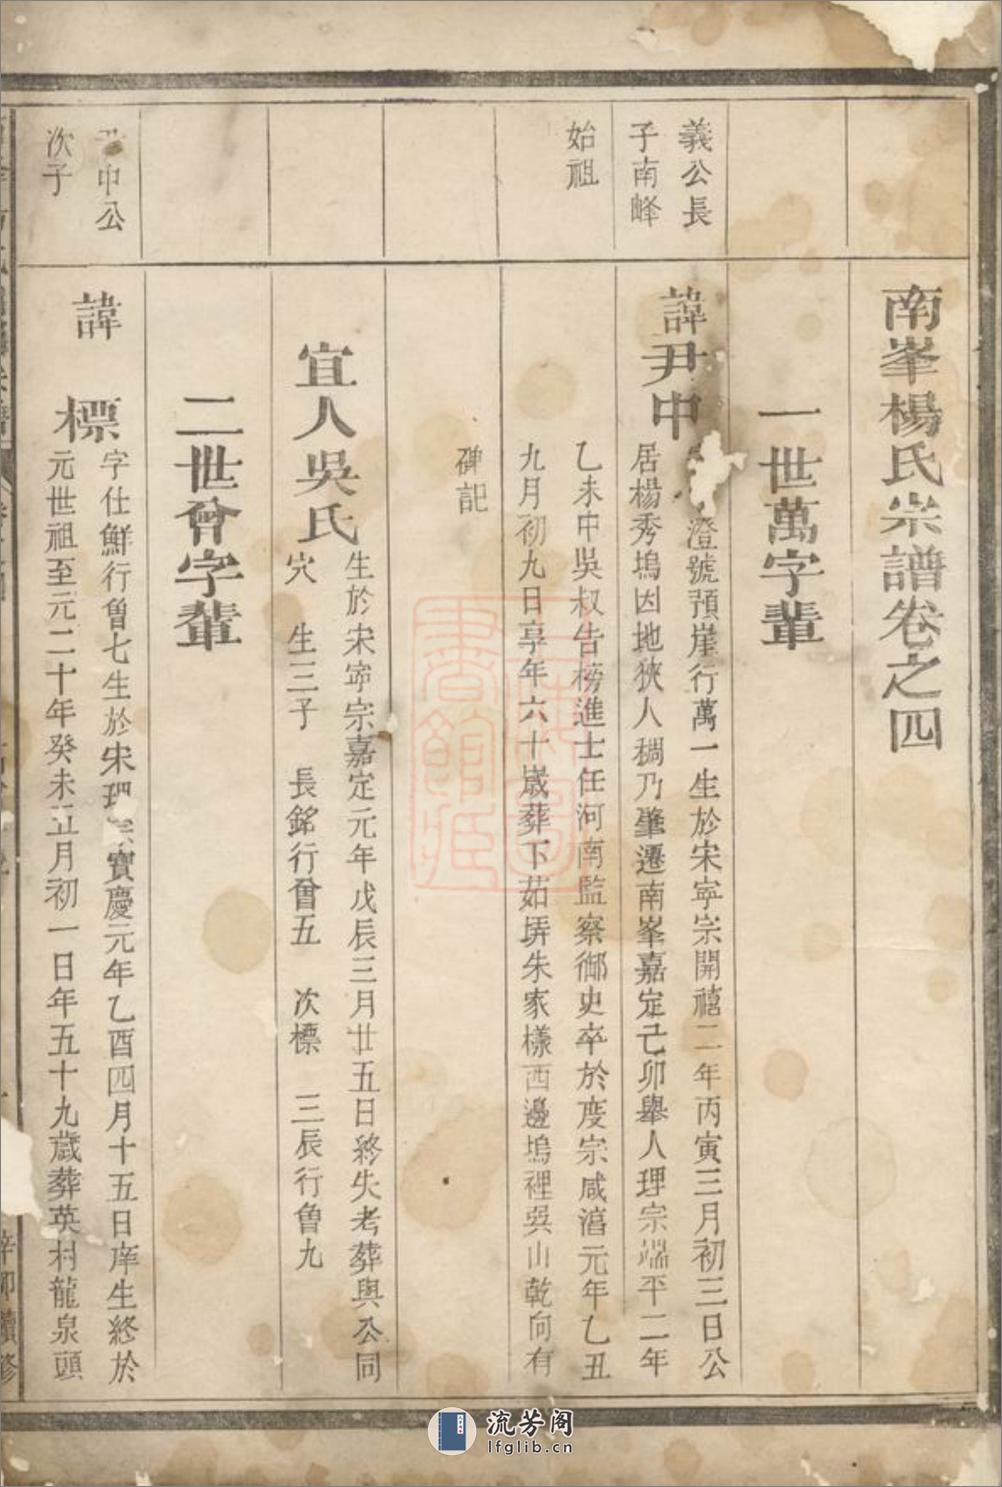 南峯楊氏宗譜卷之四
一世萬字輩
義公長
子南峰
始祖
諱尹中
澄號預崖行萬一生於宋寧宗開禧二年丙寅三月初三日公
居楊秀塢因地狹人稠乃肇遷南峯嘉定己卯舉人理宗端平二年
乙未中吳叔告榜進士任河南監察御史卒於度宗咸湻元年乙丑
九月初九日享年六十歲葬下茹塝朱家樣西邊塢裡吳山乾向有
碑記
宜人吳氏
生於宋寧宗嘉定元年戊辰三月廿五日終失考葬與公同
穴 生三子 長銘行曾五 次標 三辰行魯九
二世會字輩
中公
次子
諱 標
字仕鮮行魯七生於宋理宗寶慶元年乙酉四月十五日庠生終於
元世祖至元二十年癸未五月初一日年五十九歲葬英村龍泉頭
續修
流芳阁
lfglib.cn